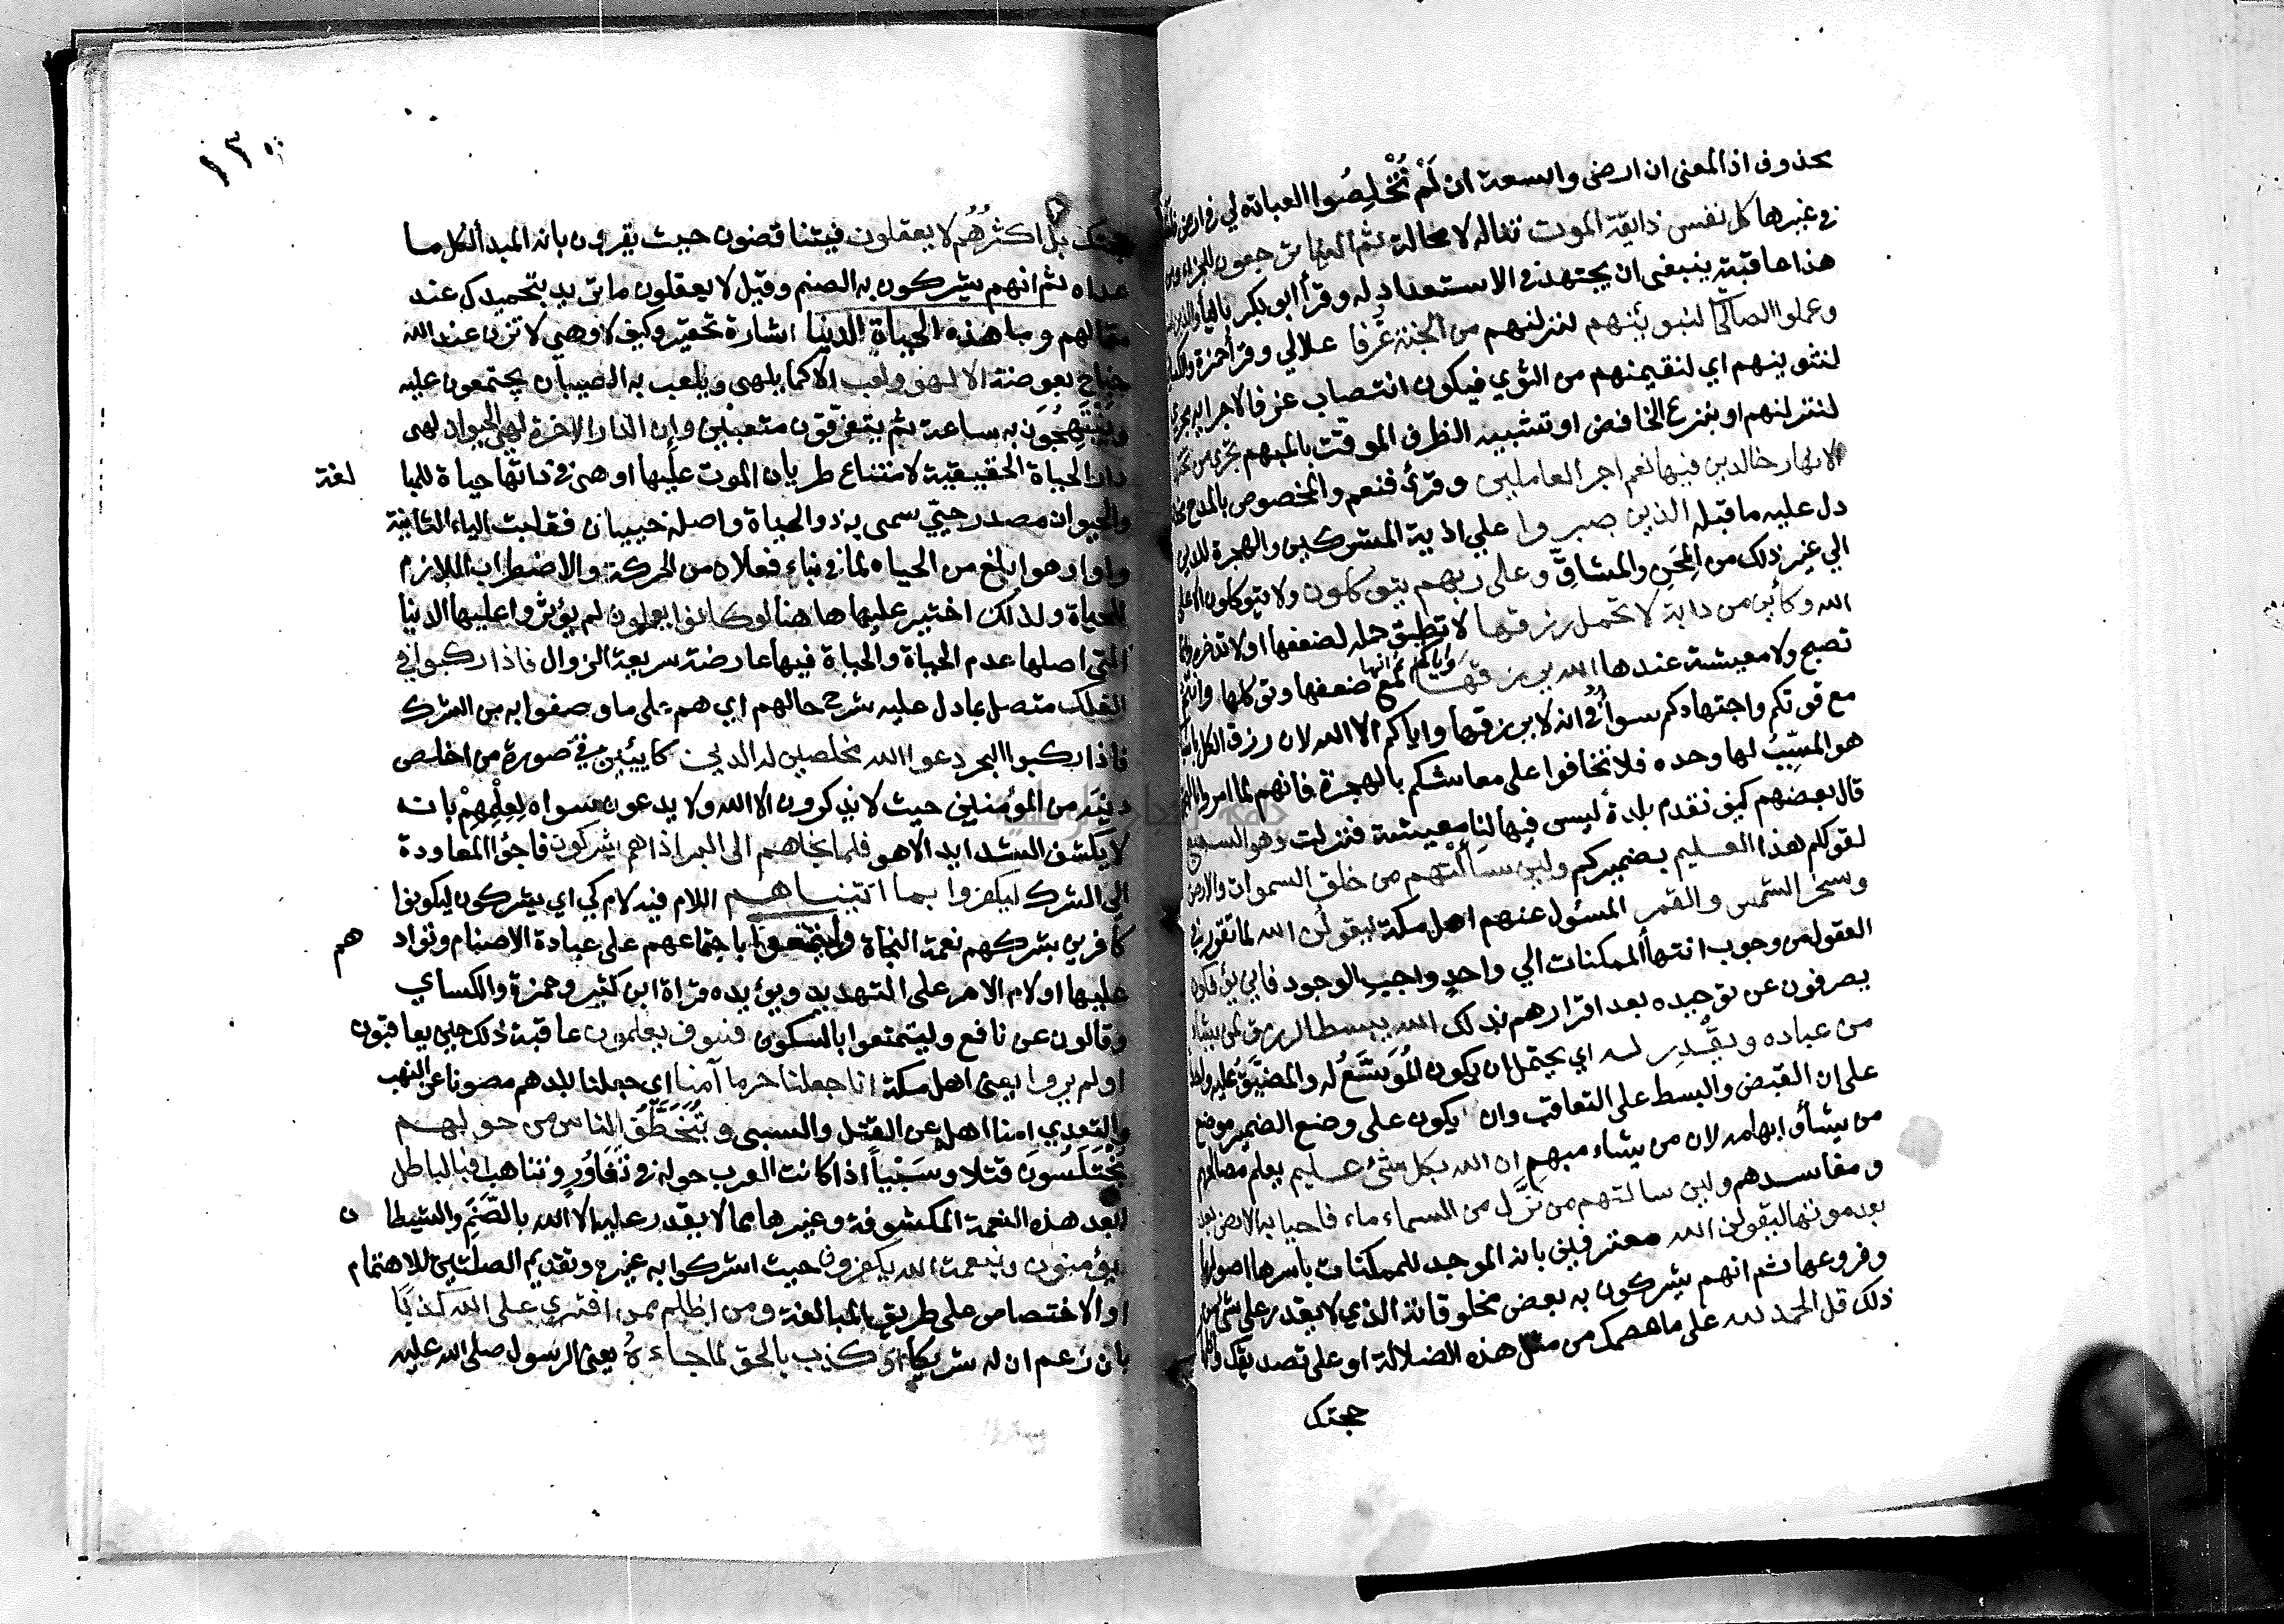 محذوف اذ المعنى ان ارضى واسعة ان لَمْ تُخْلِصُوا العبادة لي في ارض
في غيرها كل نفس ذايقة الموت تناله لا محالة ثم الينا ترجعون للجزاء ومن
هذا عاقبته ينبغى ان يجتهد في الاستعداد له وقرأ ابو بكر بالياء والذين امنوا
وعملوا الصالحات لنبوئنهم لننزلنهم من الجنة غرفا علالي وقرأ حمزة والكسائي
لنثوينهم اي لنقيمنهم من الثوي فيكون انتصاب غرفا لاجرايه مجرى
لننزلنهم او بنزع الخافض او تشبيه الظرف الموقت بالمبهم تجرى من تحتها
الانهار خالدين فيها نعم اجر العاملين وقرئ فنعم والمخصوص بالمدح محذوف
دل عليه ما قبله الذين صبروا علي اذية المشركين والهجرة للدين
الي غير ذلك من المِحَنِ والمشاقّ وعلى ربهم يتوكلون ولا يتوكلون الا على
الله وكأين من دابة لا تحمل رزقها لا تطيق حمله لضعفها او لا تدخره وانما
تصبح ولا معيشة عندها الله يرزقها واياكم ثم انها مع ضعفها وتوكلها وانتم
مع قوتكم واجتهادكم سواء في انه لا يرزقها واياكم الا الله لان رزق الكل باسباب
هو المسَبِّبُ لها وحده فلا تخافوا على معاشكم بالهجرة فانهم لما امروا بالهجرة
قال بعضهم كيف نقدم بلدة ليس فيها لنا معيشة فنزلت وهو السميع
لقولكم هذا العليم بضميركم ولين سألتهم من خلق السموات والارض
وسخر الشمس والقمر المسئول عنهم اهل مكة ليقولن الله لما تقرر في
العقول من وجوب انتهاء الممكنات الي واحدٍ واجبِ الوجود فاني يؤفكون
يصرفون عن توحيده بعد اقرارهم بذلك الله يبسط الرزق لمن يشاء
من عباده ويقدر له اي يحتمل ان يكون المُوَسَّعُ له والمضَيَّق عليه واحدا
على ان القبض والبسط على التعاقب وان يكون على وضع الضمير موضع
من يشأ وابهامه لان من يشاء مبهم ان الله بكل شئ عليم يعلم مصالحهم
ومفاسدهم ولين سالتهم من نَزَّل من السماء ماء فاحيا به الارض بعد
بعد موتها ليقولن الله معترفين بانه الموجد للممكنات بأسرها اصولها
وفروعها ثم انهم يشركون به بعض مخلوقاته الذي لا يقدر على شئ من
ذلك قل الحمد لله على ما عصمك من مثل هذه الضلالة او على تصديقك واظهار
حجتك
١٣٥
حجتك بل اكثرُهُم لا يعقلون فيتناقضون حيث يقرون بانه المبدأ لكل ما
عداه ثم انهم يشركون به الصنم وقيل لا يعقلون ما تريد بتحميدك عند
مقالهم وما هذه الحياة الدنيا اشارة تحقير وكيف لا وهي لا تزن عند الله
جناح بعوضة الا لهو ولعب الا كما يلهى ويلعب به الصبيان يجتمعون عليه
وَيَبْتَهِجُونَ به ساعة ثم يتفرقون متعبين وان الدار الاخرة لهى الحيوان لهى
دار الحياة الحقيقية لامتناع طريان الموت عليها او هى في ذاتها حياة للمبا لغة
والحيوان مصدر حيي سمى به ذو الحياة واصله حييان فقلبت الياء الثانية
واوا وهو ابلغ من الحياه لما في بناء فعلان من الحركة والاضطراب اللازم
للحياة ولذلك اختير عليها هاهنا لو كانوا يعلمون لم يؤثروا عليها الدنيا
التى اصلها عدم الحياة والحياة فيها عارضة سريعة الزوال فاذا ركبوا في
الفلك متصل بما دل عليه شرح حالهم اي هم على ما وصفوا به من الشرك
فاذا ركبوا البحر دعوا الله مخلصين له الدين كايئين في صورة من اخلص
دينه من المؤمنين حيث لا يذكرون الا الله ولا يدعون سواه لِعِلْمِهِمْ بانه
لا يكشف الشدايد الا هو فلما نجاهم الى البر اذا هم يشركون فاجؤا المعاودة
الي الشرك ليكفروا بما اتيناهم اللام فيه لام كي اي يشركون ليكونوا
كافرين بشركهم نعمة النجاة وليتمتعوا باجتماعهم على عبادة الاصنام وتواد هم
عليها او لام الامر على التهديد ويؤيده قراة ابن كثير وحمزة والكساي
وقالون عن نافع وليتمتعوا بالسكون فسوف يعلمون عاقبة ذلك حين يعاقبون
اولم يروا يعنى اهل مكة انا جعلنا حرما آمنا اي جعلنا بلدهم مصونا عن النهب
والتعدي امنا اهله عن القتل والسبى ويُتَخَطَّفُ الناس من حولهم
يُخْتَلَسُونَ قتلا وسَبْياً اذ كانت العرب حوله في تَغَاوُرٍ وتناهب افبالباطل
ابعد هذه النعمة المكشوفة وغيرها مما لا يقدر عليه الا الله بالصَّنَمِ والشيطا ن
يؤمنون وبنعمة الله يكفرون حيث اشركوا به غيره وتقديم الصلتين للاهتمام
او الاختصاص على طريق المبالغة ومن اظلم ممن افترى على الله كذبًا
بان زعم ان له شريكا او كذب بالحق لما جاءهُ يعنى الرسول صلى الله عليه